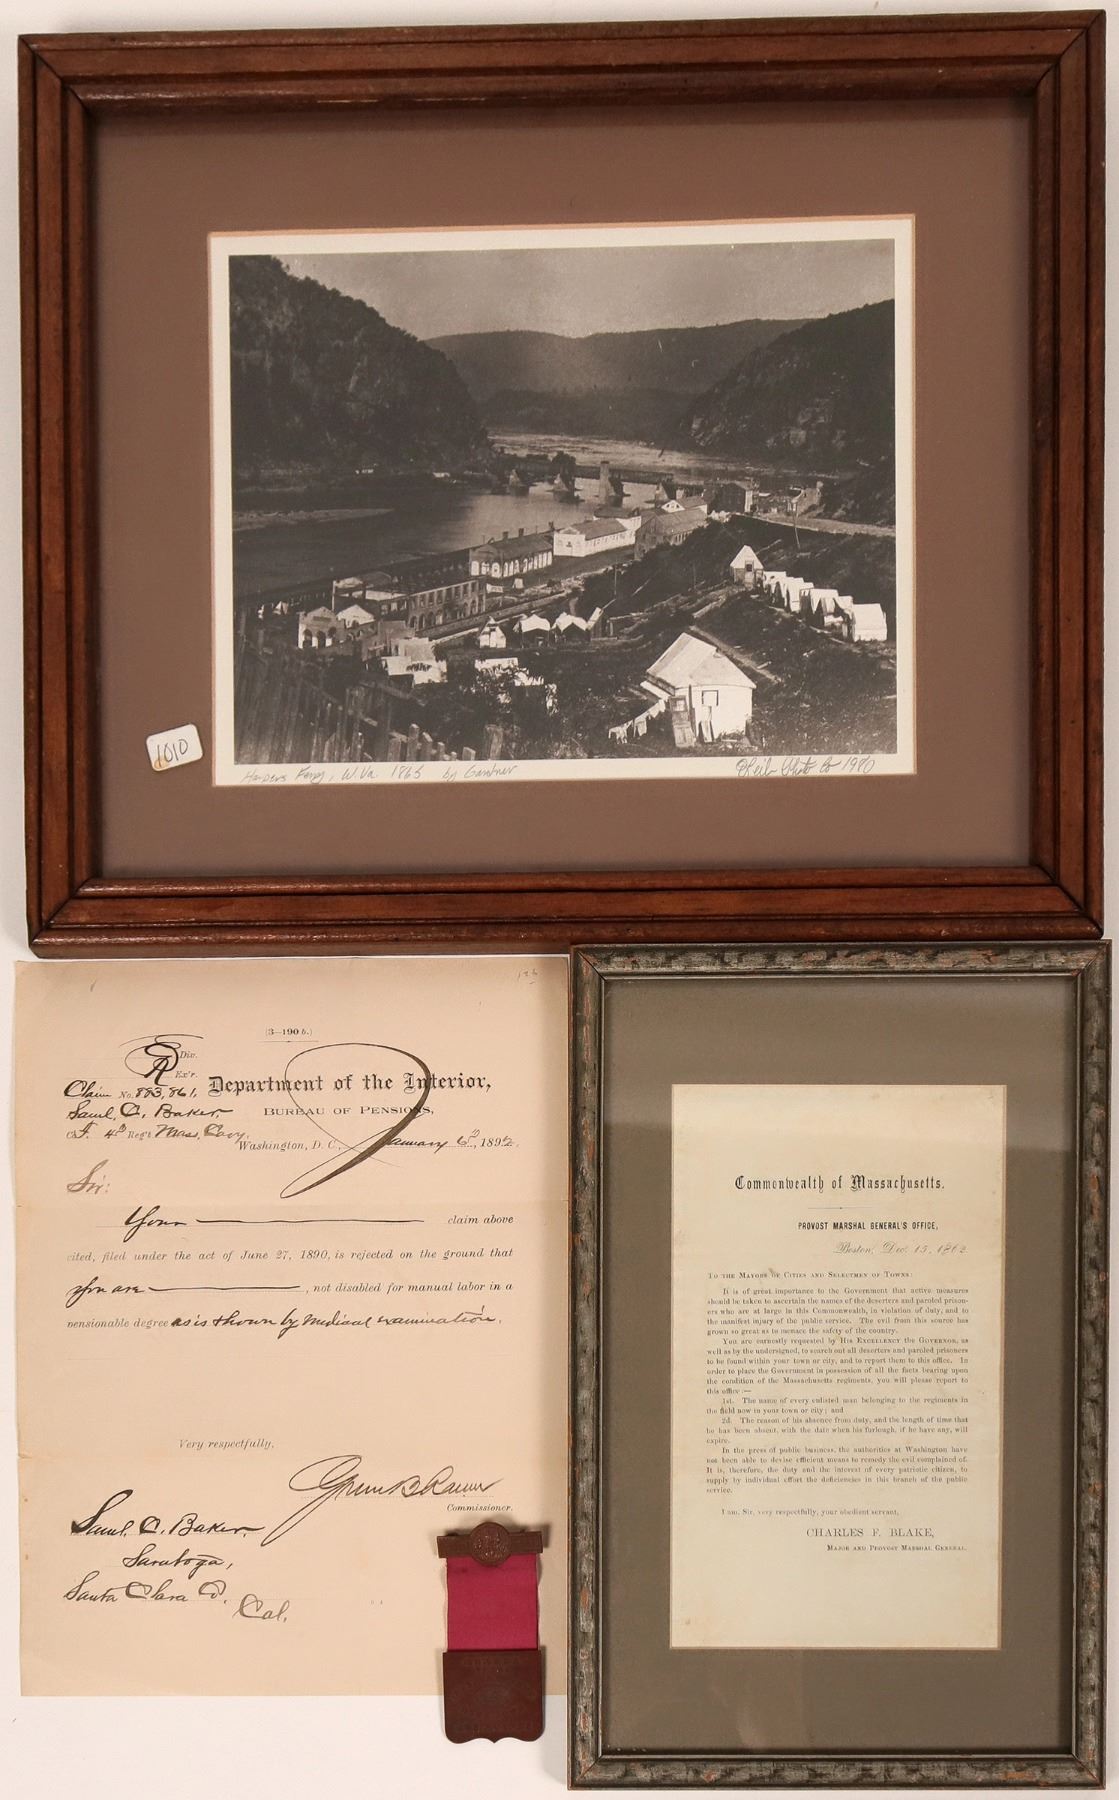 1010
Harpers Ferry, W.Va. 1865 by Gardner
Photo Co 1980
126
(3—190 b.)
Div.
Ex'r.
Claim No. 883,861,
Saml. C. Baker,
Co F. 4th Reg't Mass. Cavy.
Department of the Interior,
BUREAU OF PENSIONS,
Washington, D. C., January 6th, 1892.
Sir:
Your claim above
cited, filed under the act of June 27, 1890, is rejected on the ground that
you are, not disabled for manual labor in a
pensionable degree as is shown by medical examination.
Very respectfully,
Green B. Raum
Commissioner.
Saml. C. Baker,
Saratoga,
Santa Clara Co.
Cal.
Commonwealth of Massachusetts.
PROVOST MARSHAL GENERAL'S OFFICE,
Boston, Dec. 15, 1862
TO THE MAYORS OF CITIES AND SELECTMEN OF TOWNS:
It is of great importance to the Government that active measures
should be taken to ascertain the names of the deserters and paroled prison-
ers who are at large in this Commonwealth, in violation of duty, and to
the manifest injury of the public service. The evil from this source has
grown so great as to menace the safety of the country.
You are earnestly requested by HIS EXCELLENCY the GOVERNOR, as
well as by the undersigned, to search out all deserters and paroled prisoners
to be found within your town or city, and to report them to this office. In
order to place the Government in possession of all the facts bearing upon
the condition of the Massachusetts regiments, you will please report to
this office:—
1st. The name of every enlisted man belonging to the regiments in
the field now in your town or city; and
2d. The reason of his absence from duty, and the length of time that
he has been absent, with the date when his furlough, if he have any, will
expire.
In the press of public business, the authorities at Washington have
not been able to devise efficient means to remedy the evil complained of.
It is, therefore, the duty and the interest of every patriotic citizen, to
supply by individual effort the deficiencies in this branch of the public
service.
I am, Sir, very respectfully, your obedient servant,
CHARLES F. BLAKE,
MAJOR AND PROVOST MARSHAL GENERAL.